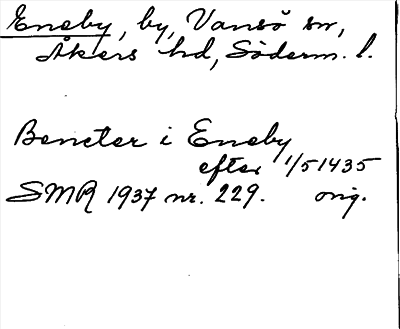 Eneby, by, Vansö sn,
Åkers hd, Söderm. l.
Bencter i Eneby
efter 1/5 1435
SMR 1937 nr. 229. orig.